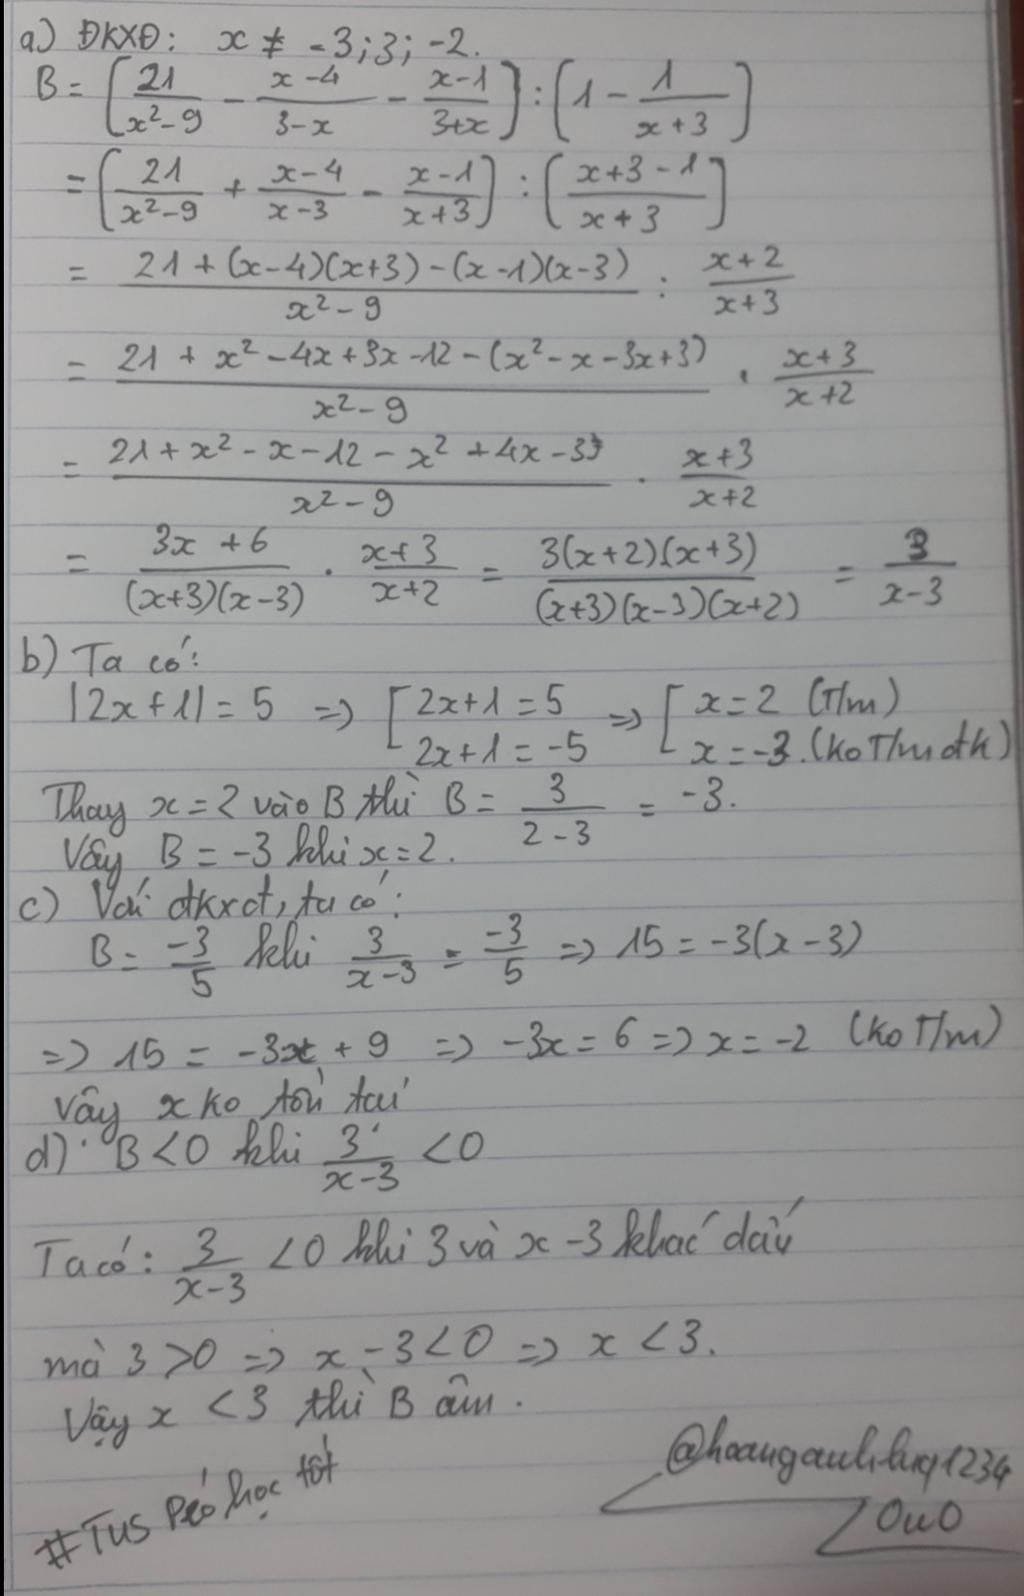 a) ĐKXĐ: x ≠ -3; 3; -2.
B = [21/(x²-9) - (x-4)/(3-x) - (x-1)/(3+x)] : [1 - 1/(x+3)]
= [21/(x²-9) + (x-4)/(x-3) - (x-1)/(x+3)] : [(x+3-1)/(x+3)]
= (21+(x-4)(x+3)-(x-1)(x-3))/(x²-9) : (x+2)/(x+3)
= (21+x²-4x+3x-12-(x²-x-3x+3))/(x²-9) . (x+3)/(x+2)
= (21+x²-x-12-x²+4x-3)/(x²-9) . (x+3)/(x+2)
= (3x+6)/((x+3)(x-3)) . (x+3)/(x+2) = (3(x+2)(x+3))/((x+3)(x-3)(x+2)) = 3/(x-3)
b) Ta có:
|2x+1| = 5 => [2x+1 = 5; 2x+1 = -5 => [x = 2 (T/m); x = -3. (ko T/m đk)
Thay x = 2 vào B thì B = 3/(2-3) = -3.
Vậy B = -3 khi x = 2.
c) Với đkxđ, ta có:
B = -3/5 khi 3/(x-3) = -3/5 => 15 = -3(x-3)
=> 15 = -3x + 9 => -3x = 6 => x = -2 (ko T/m)
Vậy x ko tồn tại
d) B < 0 khi 3/(x-3) < 0
Ta có: 3/(x-3) < 0 khi 3 và x-3 khác dấu
mà 3 > 0 => x - 3 < 0 => x < 3.
Vậy x < 3 thì B âm.
#TUS Péo học tốt
OuO